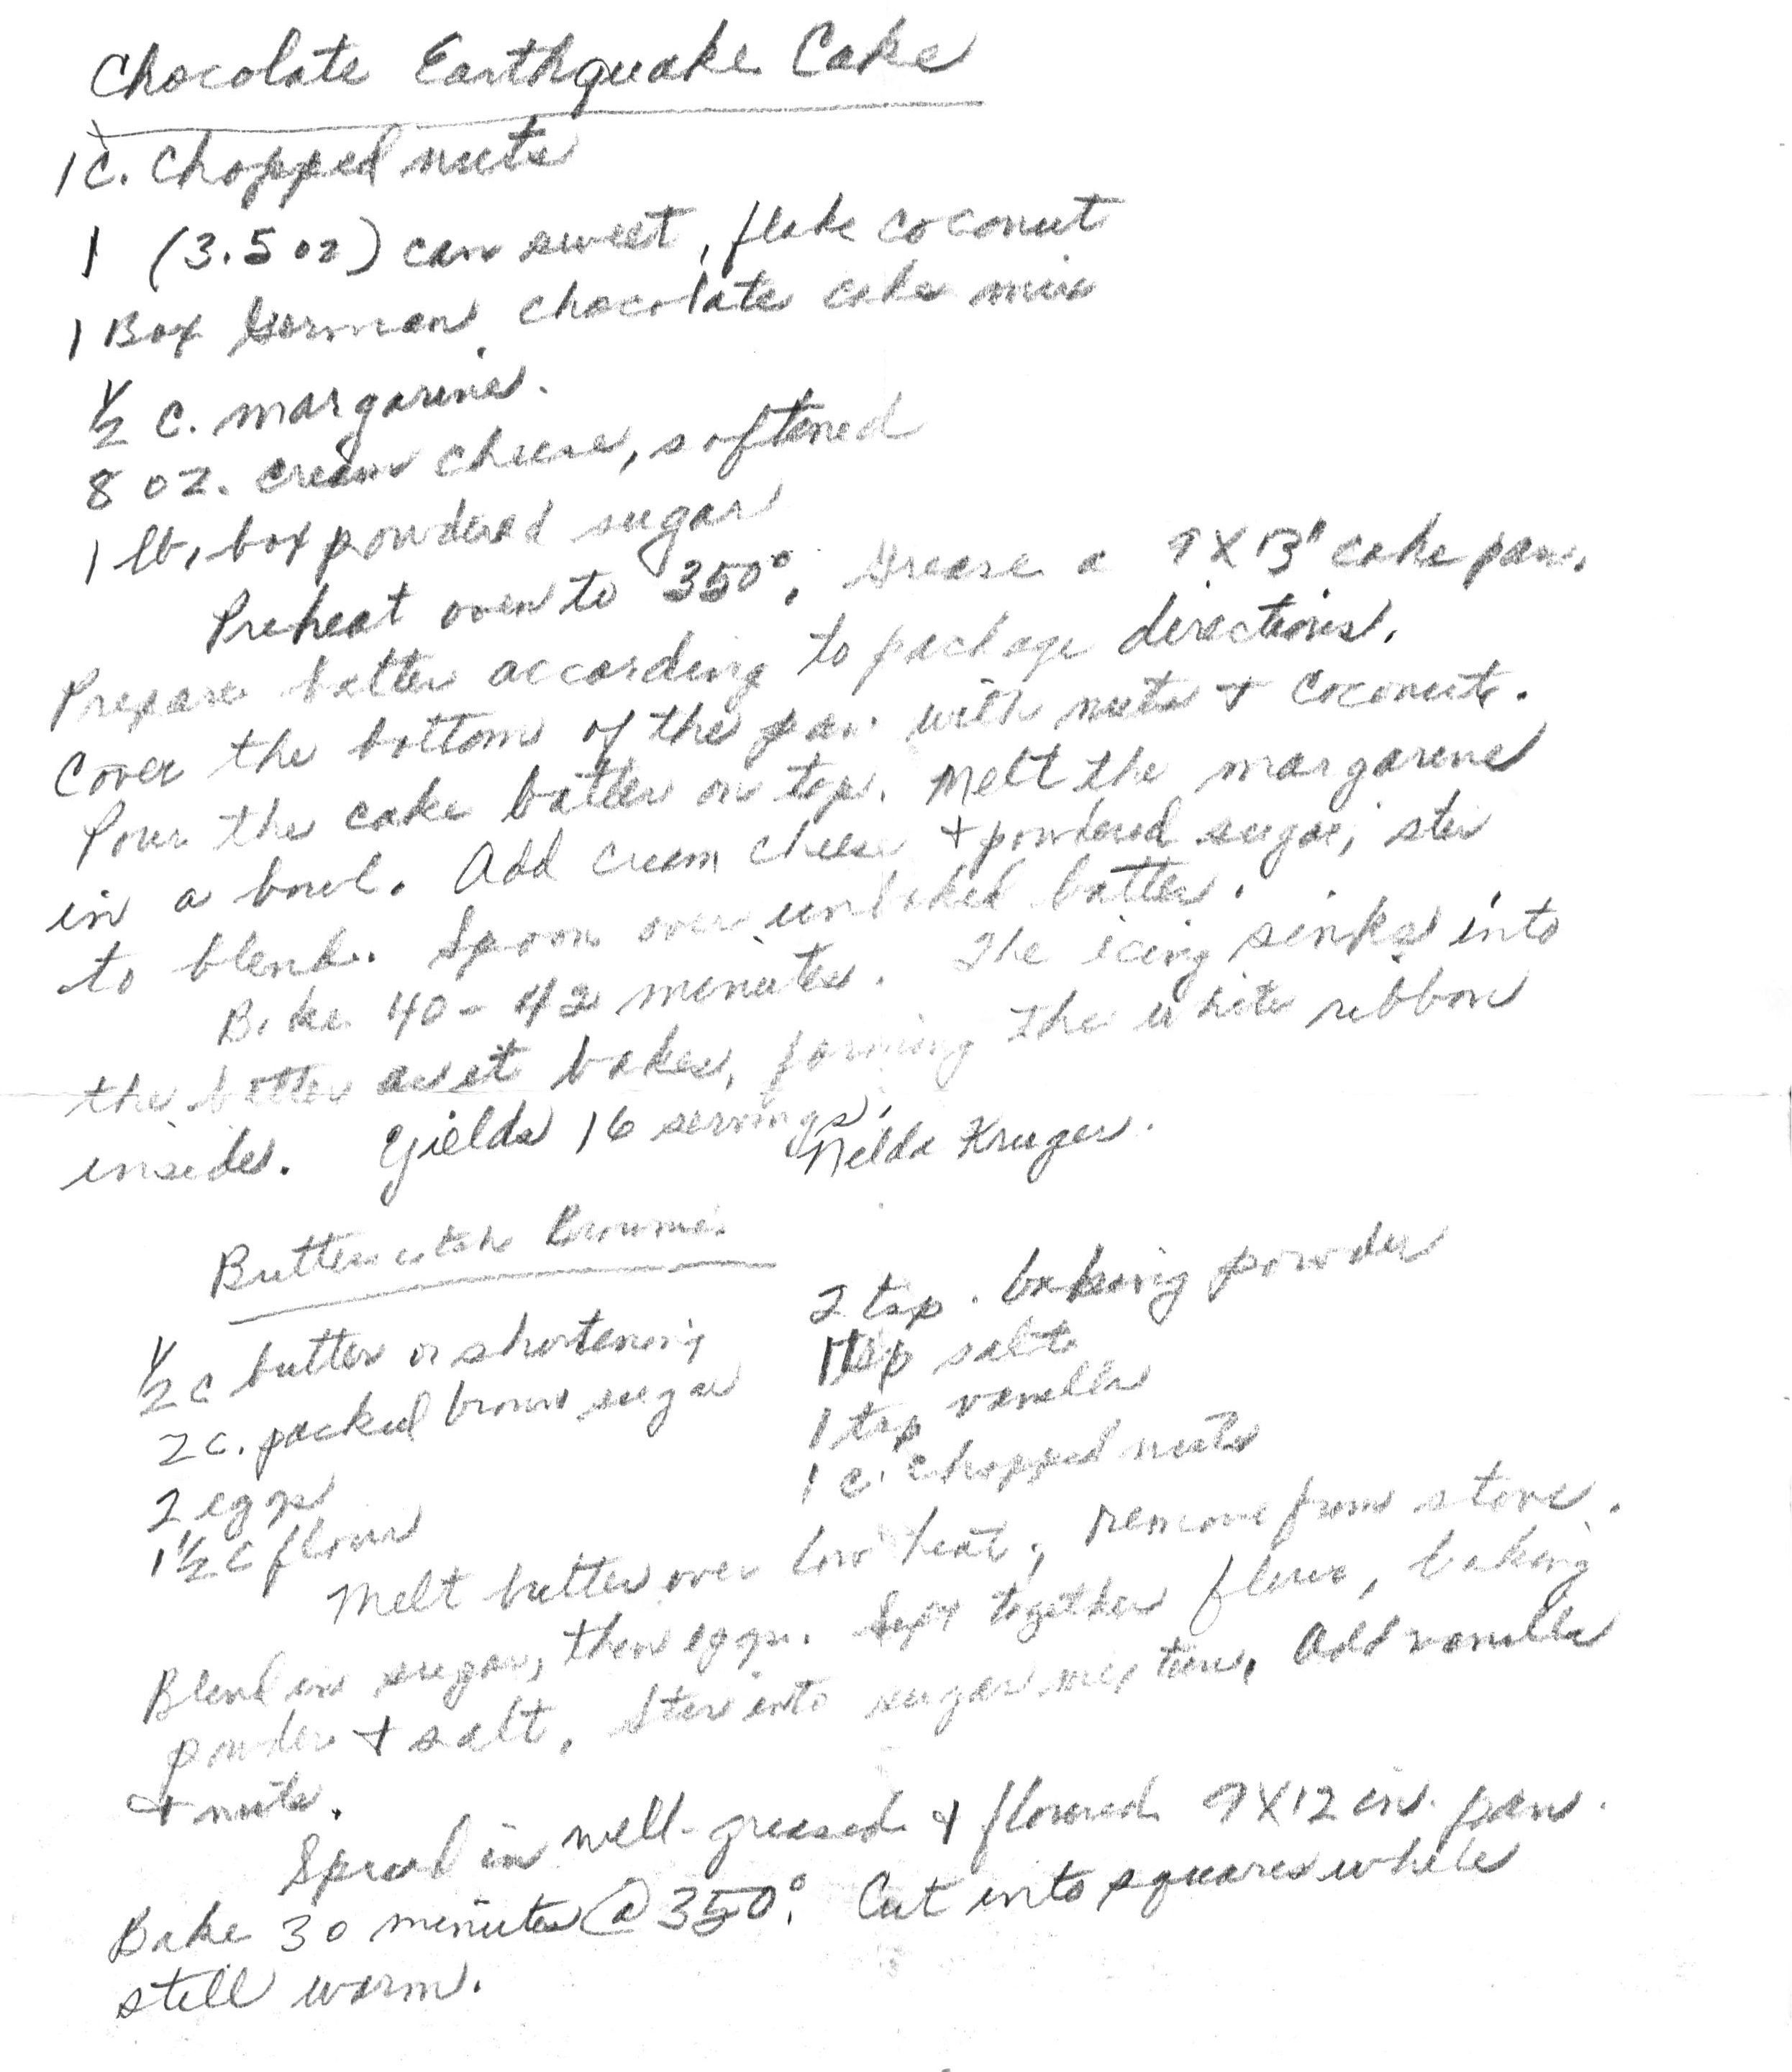 Chocolate Earthquake Cake
1 C. Chopped nuts
1 (3.5 oz) can sweet, flake coconut
1 Box German chocolate cake mix
½ C. margarine.
8 oz. cream cheese, softened
1 lb. box powdered sugar
Preheat oven to 350°. Grease a 9 X 13" cake pan.
Prepare batter according to package directions.
Cover the bottom of the pan with nuts + coconut.
Pour the cake batter on top. Melt the margarine
in a bowl. Add cream cheese + powdered sugar, stir
to blend. Spoon over unbaked batter.
Bake 40 - 42 minutes. The icing sinks into
the batter as it bakes, forming the white ribbon
inside. Yields 16 servings.
Nelda Kruger.
Butterscotch Brownies
½ c butter or shortening
2 c. packed brown sugar
2 eggs
1 ½ c flour
2 tsp. baking powder
1 tsp salt
1 tsp vanilla
1 c. chopped nuts
Melt butter over low heat, remove from stove.
Blend in sugar, then eggs. Sift together flour, baking
powder + salt. Stir into sugar mixture. Add vanilla
+ nuts.
Spread in well-greased + floured 9 X 12 in. pan.
Bake 30 minutes @ 350°. Cut into squares while
still warm.